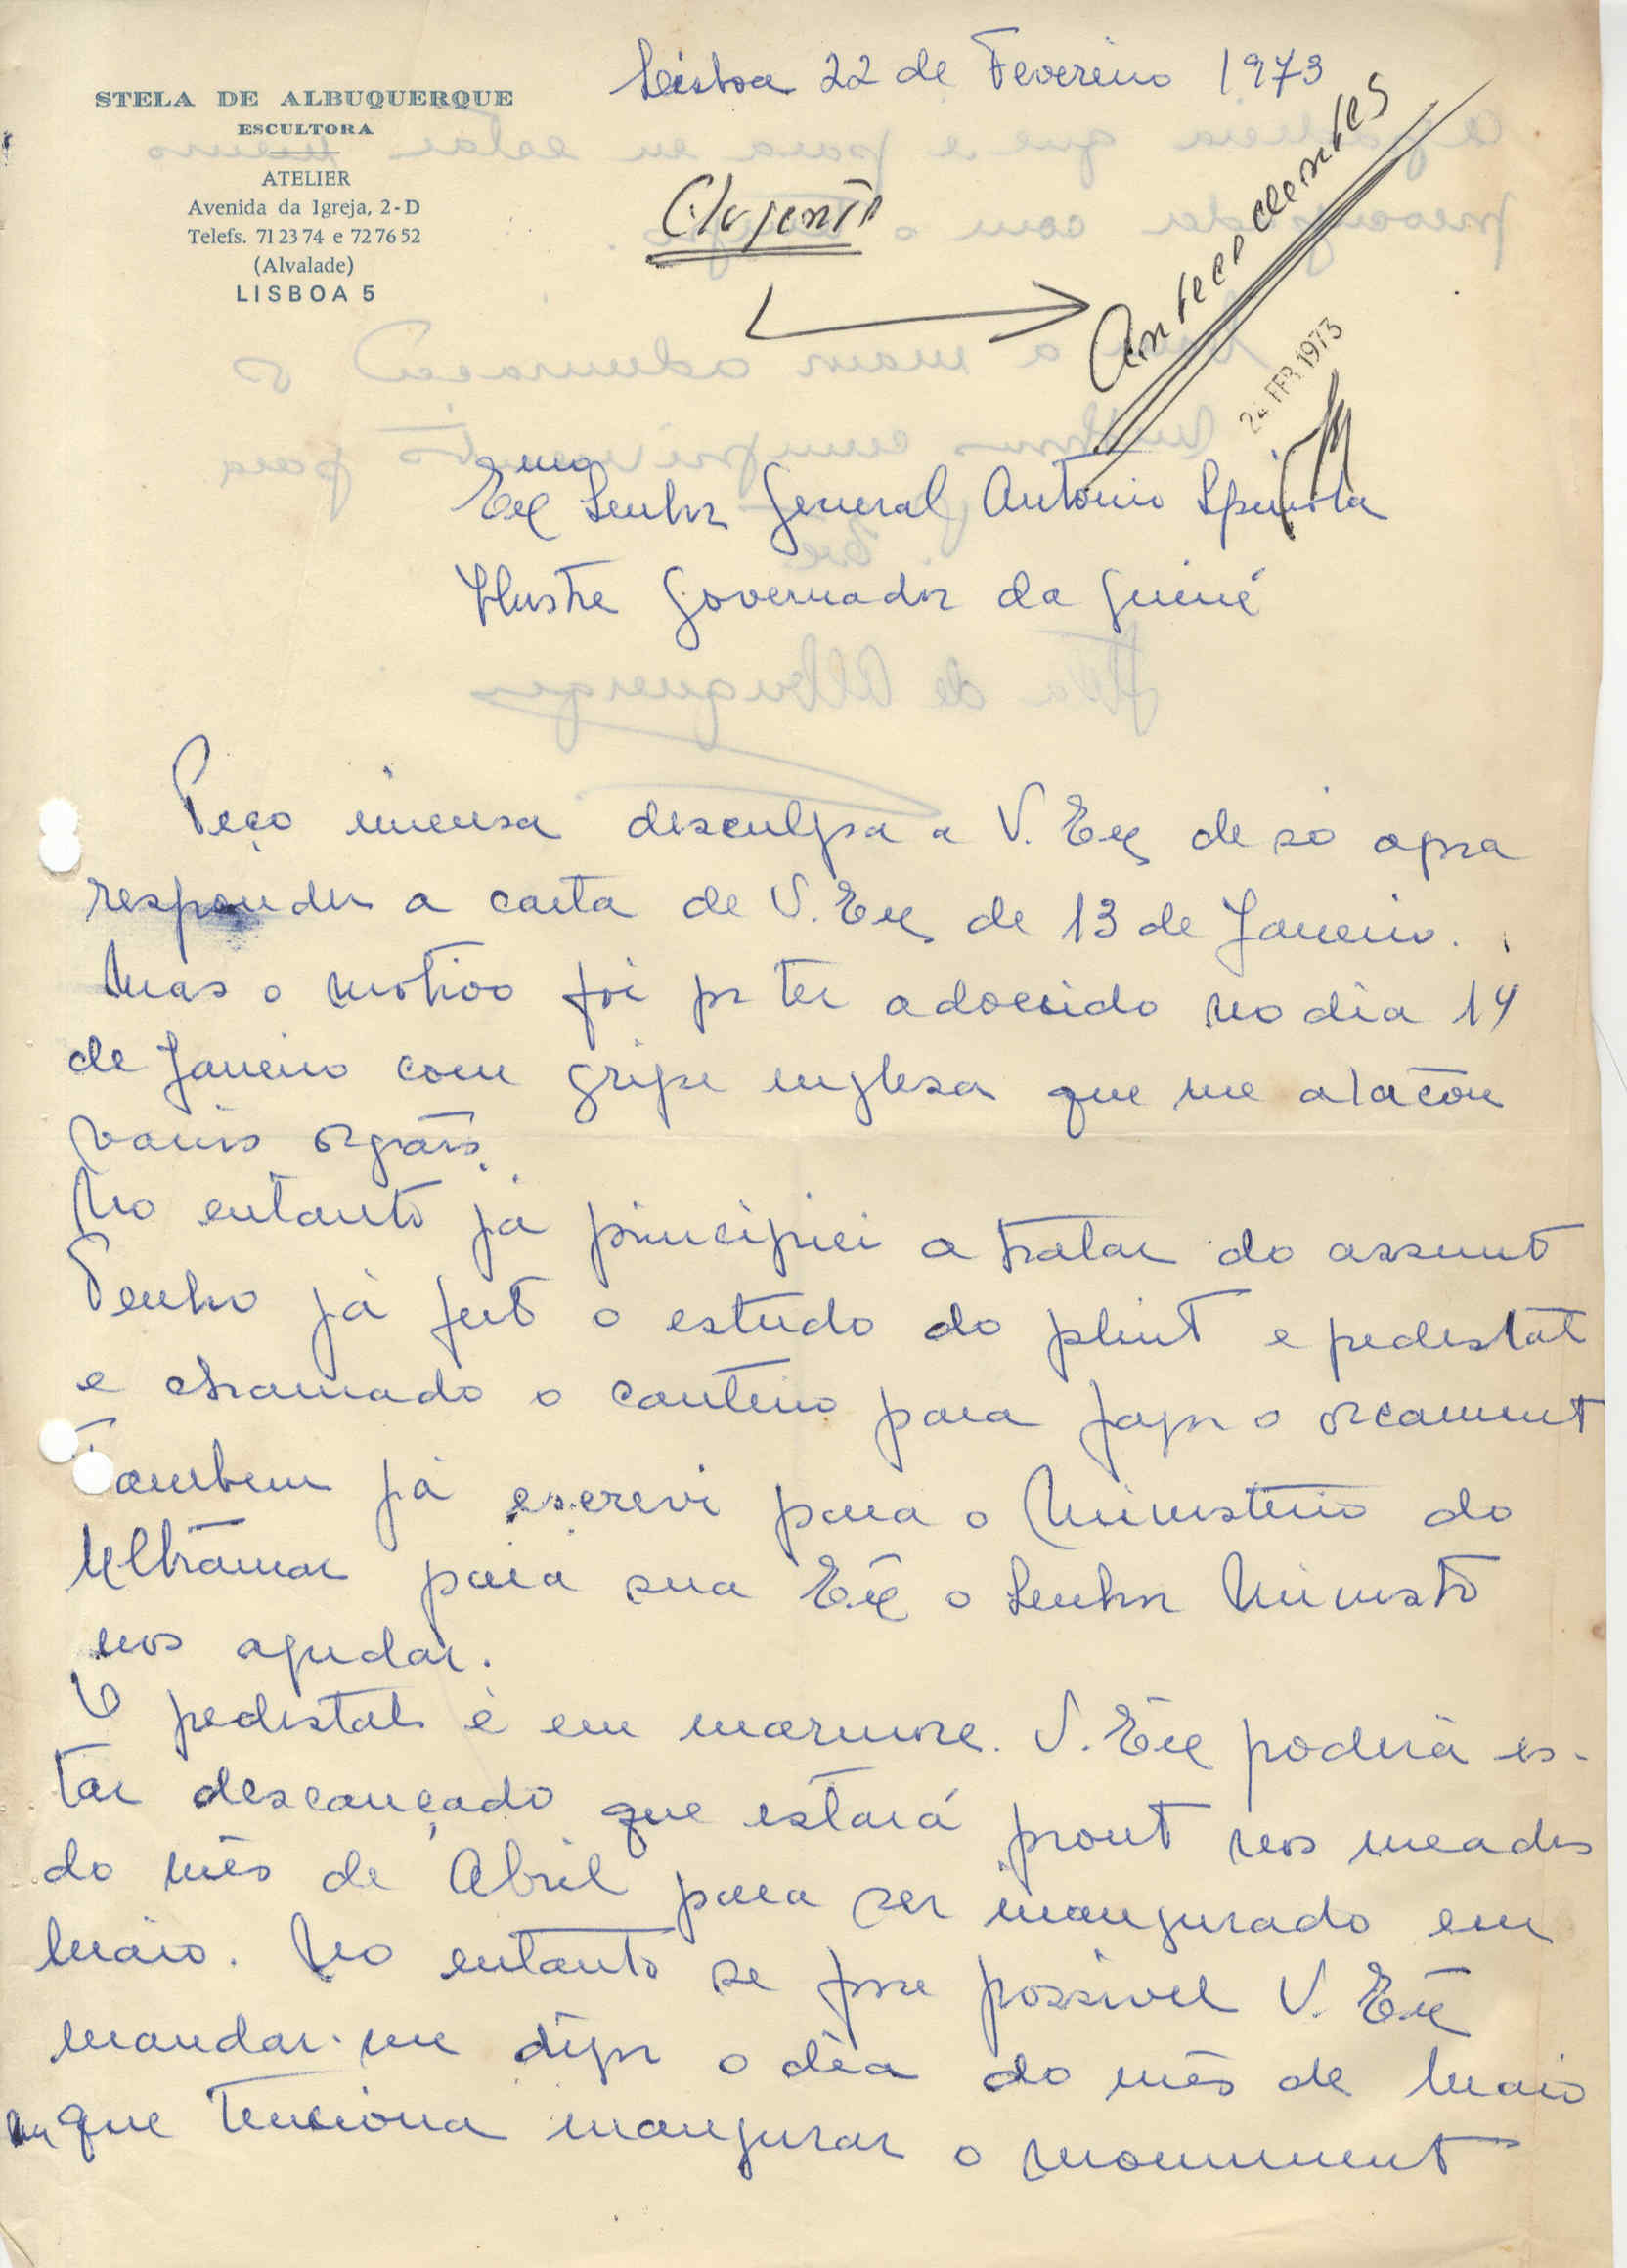 STELA DE ALBUQUERQUE
ESCULTORA
ATELIER
Avenida da Igreja, 2-D
Telefs. 71 23 74 e 72 76 52
(Alvalade)
LISBOA 5
Lisboa 22 de Fevereiro 1973
Antecedentes
24 FEB 1973
Exmo Senhor General António Spinola
Ilustre Governador da Guiné
Peço imensa desculpa a V. Ex de só agora
responder a carta de V. Ex de 13 de Janeiro.
Mas o motivo foi por ter adoecido no dia 14
de Janeiro com gripe inglesa que me atacou
varios orgãos.
No entanto já principiei a tratar do assunto
Tenho já feito o estudo do plinto e pedestal
e chamado o canteiro para fazer o orcamento
Tambem já escrevi para o Ministerio do
Ultramar para sua Ex o Senhor Ministro
nos ajudar.
O pedestal é em marmore. V. Ex poderá es-
tar descançado que estará pronto nos meados
do mês de Abril para ser inaugurado em
Maio. No entanto se fosse possivel V. Ex
mandar-me dizer o dia do mês de Maio
em que tenciona inaugurar o monumento